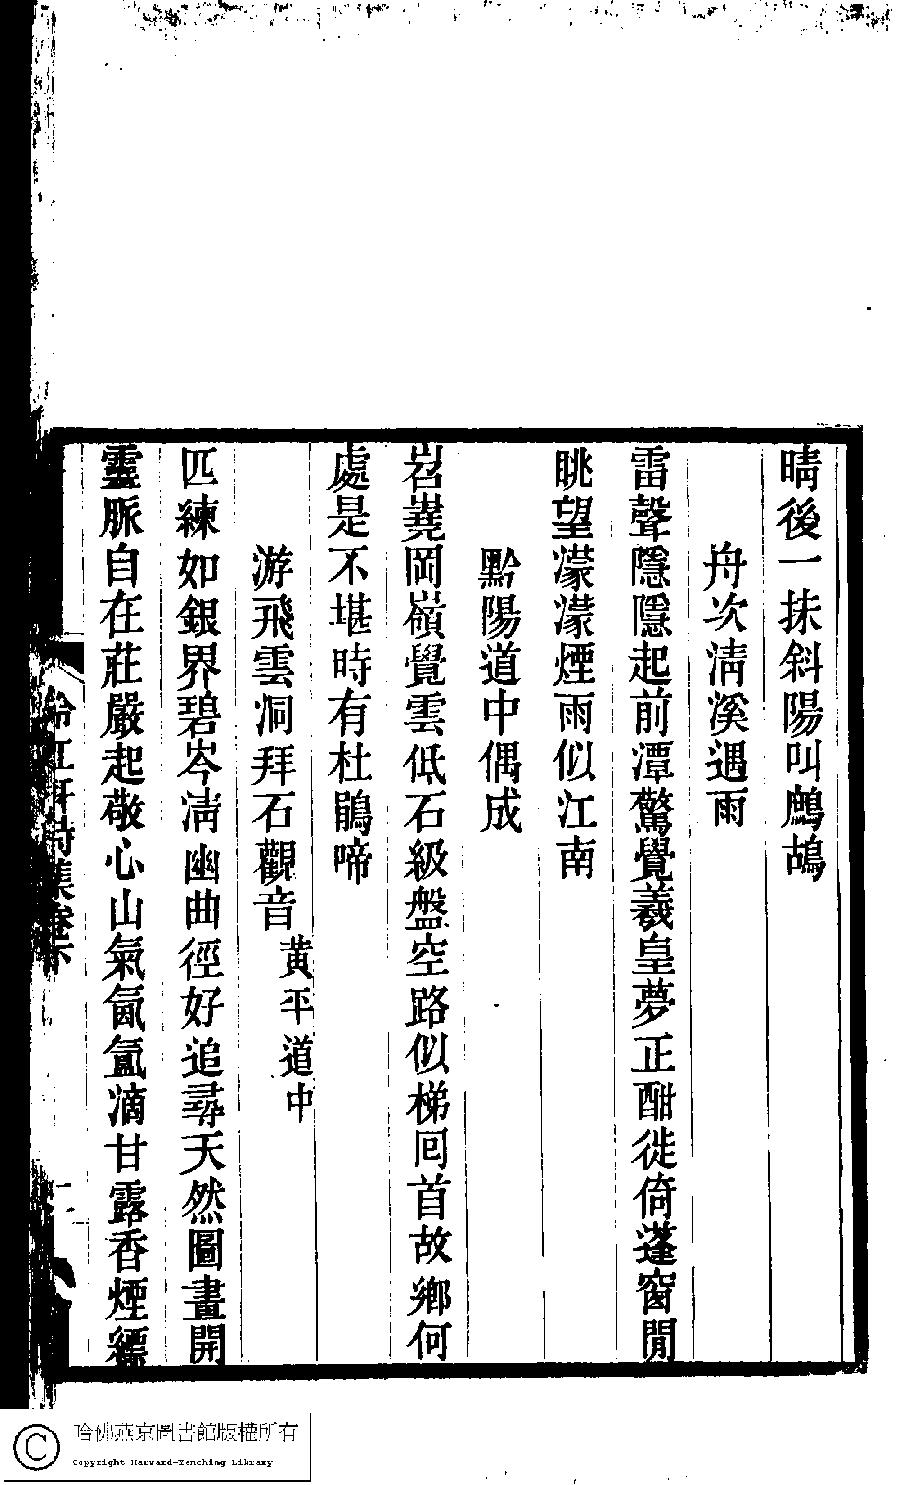 晴後一抹斜陽叫鷓鴣
舟次淸溪遇雨
雷聲隱隱起前潭驚覺羲皇夢正酣徙倚蓬窗閒
眺望濛濛煙雨似江南
黔陽道中偶成
岧嶤岡嶺覺雲低石級盤空路似梯回首故鄉何
處是不堪時有杜鵑啼
游飛雲洞拜石觀音黃平道中
匹練如銀界碧岑淸幽曲徑好追尋天然圖畫開
靈脈自在莊嚴起敬心山氣氤氳滴甘露香煙縹
冷紅軒詩集卷下
哈佛燕京圖書館版權所有
Copyright Harvard-Yenching Library